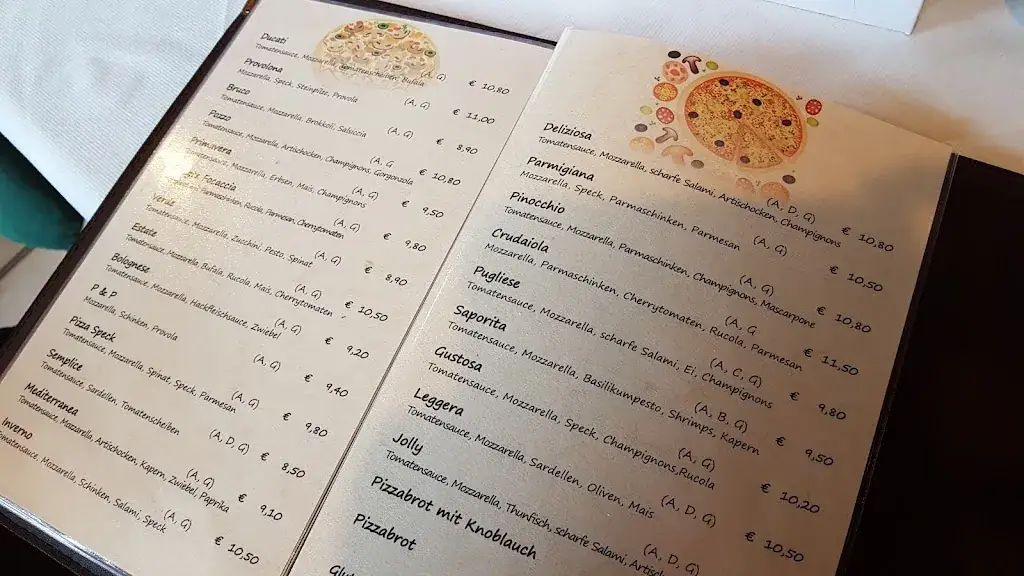 Ducati
Tomatensauce, Mozzarella, Tomatenscheiben, Bufala
(A, G)
€ 10,80
Provolona
Mozzarella, Speck, Steinpilze, Provola
(A, G)
€ 11,00
Bruco
Tomatensauce, Mozzarella, Brokkoli, Salsiccia
(A, G
€ 8,90
Pazzo
Tomatensauce, Mozzarella, Artischocken, Champignons, Gorgonzola
(A, G)
€ 10,80
Primavera
Tomatensauce, Mozzarella, Erbsen, Mais, Champignons
(A, G)
€ 9,50
Focaccia
Parmaschinken, Rucola, Parmesan, Cherrytomaten
(A, G)
€ 9,80
Verde
Tomatensauce, Mozzarella, Zucchini, Pesto, Spinat
(A, G)
€ 8,90
Estate
Tomatensauce, Mozzarella, Bufala, Rucola, Mais, Cherrytomaten
(A, G)
€ 10,50
Bolognese
Tomatensauce, Mozzarella, Hackfleischsauce, Zwiebel
(A, G)
€ 9,20
P & P
Mozzarella, Schinken, Provola
(A, G)
€ 9,40
Pizza Speck
Tomatensauce, Mozzarella, Spinat, Speck, Parmesan
€ 9,80
Semplice
Tomatensauce, Sardellen, Tomatenscheiben
(A, D, G)
€ 8,50
Mediterranea
Tomatensauce, Mozzarella, Artischocken, Kapern, Zwiebel, Paprika
(A, G)
€ 9,10
Inverno
Tomatensauce, Mozzarella, Schinken, Salami, Speck
(A, G)
€ 10,50
Deliziosa
Tomatensauce, Mozzarella, scharfe Salami, Artischocken, Champignons
(A, D, G)
€ 10,80
Parmigiana
Mozzarella, Speck, Parmaschinken, Parmesan
(A, G)
€ 10,50
Pinocchio
Tomatensauce, Mozzarella, Parmaschinken, Champignons, Mascarpone
(A, G
€ 10,80
Crudaiola
Mozzarella, Parmaschinken, Cherrytomaten, Rucola, Parmesan
€ 11,50
Pugliese
Tomatensauce, Mozzarella, scharfe Salami, Ei, Champignons
(A, C, G)
€ 9,80
Saporita
Tomatensauce, Mozzarella, Basilikumpesto, Shrimps, Kapern
(A, B, G)
€ 9,50
Gustosa
Tomatensauce, Mozzarella, Speck, Champignons,Rucola
(A, G)
€ 10,20
Leggera
Tomatensauce, Mozzarella, Sardellen, Oliven, Mais
(A, D, G)
€ 10,50
Jolly
Tomatensauce, Mozzarella, Thunfisch, scharfe Salami,
(A, D, G)
Pizzabrot mit Knoblauch
Pizzabrot